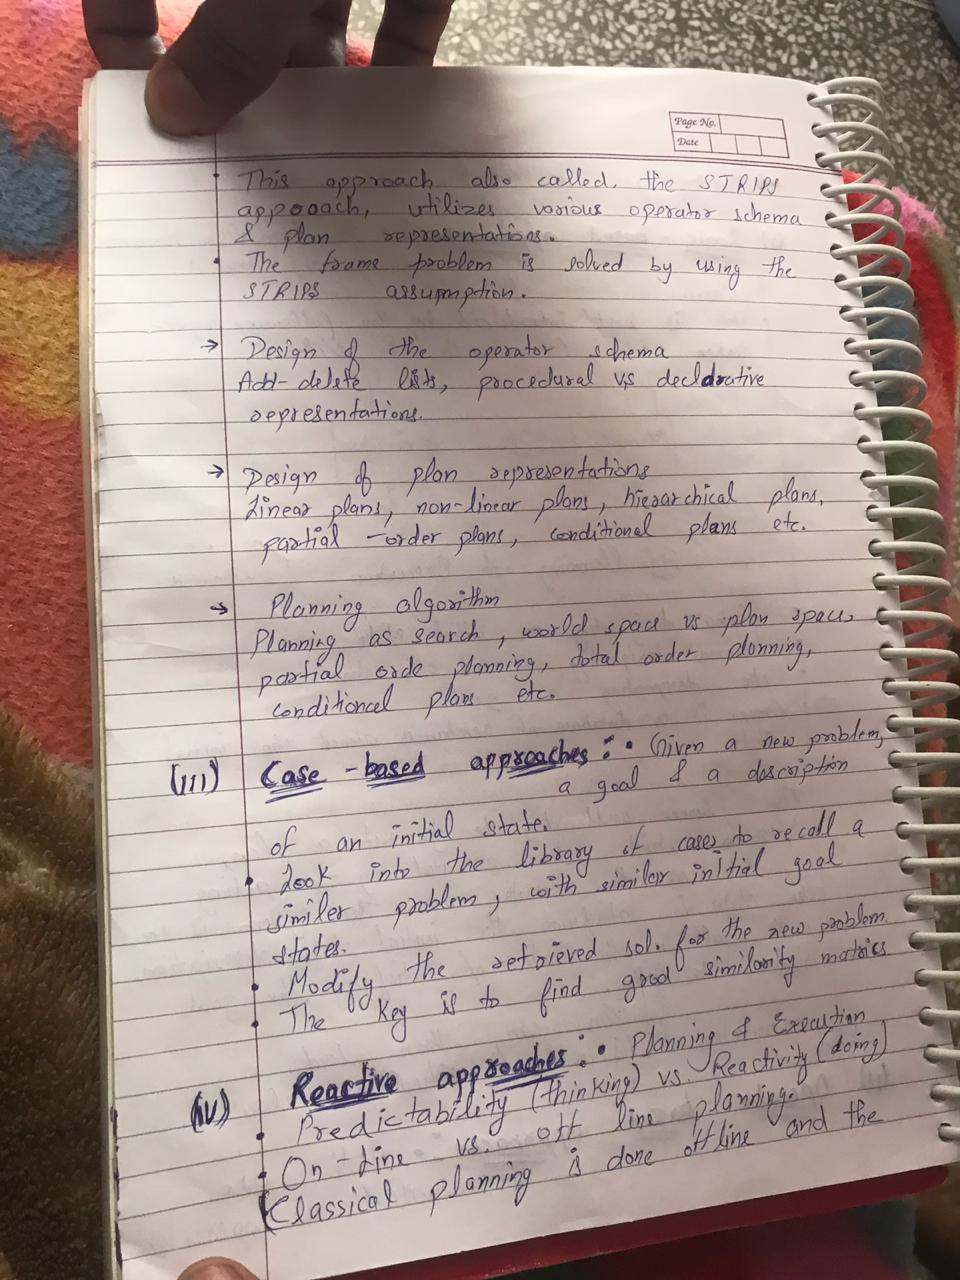 Page No.
Date
• This approach also called, the STRIPS
appooach, utilizes various operator schema
& plan representations.
• The frame problem is solved by using the
STRIPS assumption.
→ Design of the operator schema
Add-delete lists, procedural vs declarative
representations.
→ Design of plan representations
Linear plans, non-linear plans, hierarchical plans,
partial -order plans, conditional plans etc.
→ Planning algorithm
Planning as search, world space vs plan space,
partial orde planning, total order planning,
conditioncel plans etc.
(iii) Case -based approaches :- • Given a new problem,
a goal & a description
of an initial state.
• Look into the library of cases to recall a
similer problem, with similar initial goal
states.
• Modify the retrieved sol. for the new problem.
• The key is to find good similarity matrics
(iv) Reactive approaches :- • Planning & Execution
• Predictability (thinking) vs. Reactivity (doing)
• On-Line vs. off line planning.
Classical planning is done offline and the